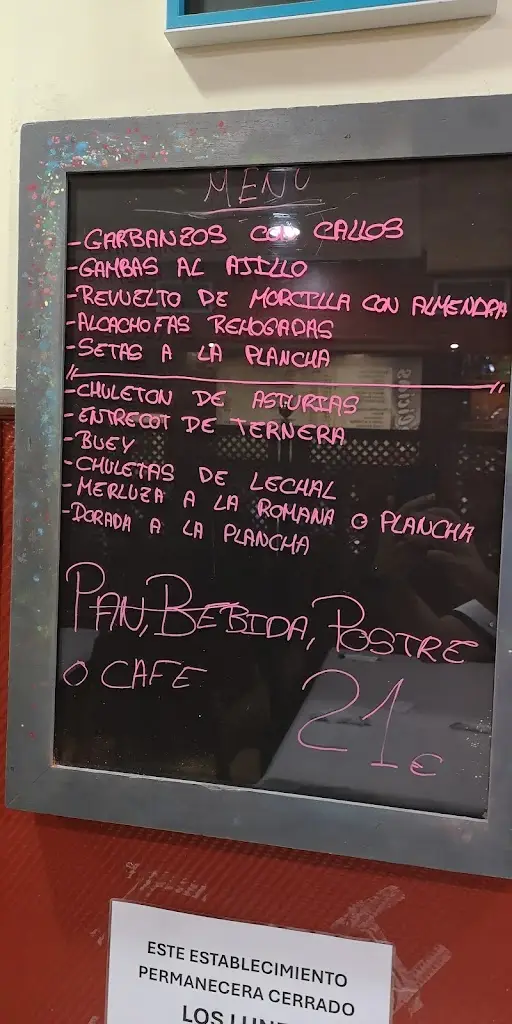 MENU
-GARBANZOS CON CALLOS
-GAMBAS AL AJILLO
-REVUELTO DE MORCILLA CON ALMENDRA
-ALCACHOFAS REHOGADAS
-SETAS A LA PLANCHA
-CHULETON DE ASTURIAS
-ENTRECOT DE TERNERA
-BUEY
-CHULETAS DE LECHAL
-MERLUZA A LA ROMANA O PLANCHA
-DORADA A LA PLANCHA
PAN, BEBIDA, POSTRE
O CAFE
21€
ESTE ESTABLECIMIENTO
PERMANECERA CERRADO
LOS